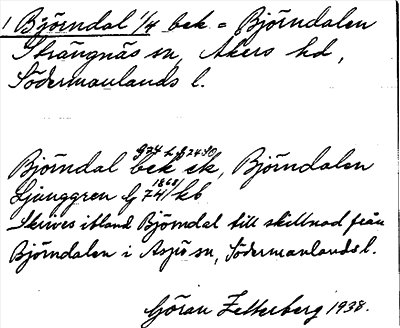 1 Björndal 1/4 bek = Björndalen
Strängnäs sn, Åkers hd,
Södermanlands l.
Björndal bek ek, Björndalen
Ljunggren 1868 kb
Skrives ibland Björndal till skillnad från
Björndalen i Aspö sn, Södermanlands l.
Göran Zetterberg 1938.